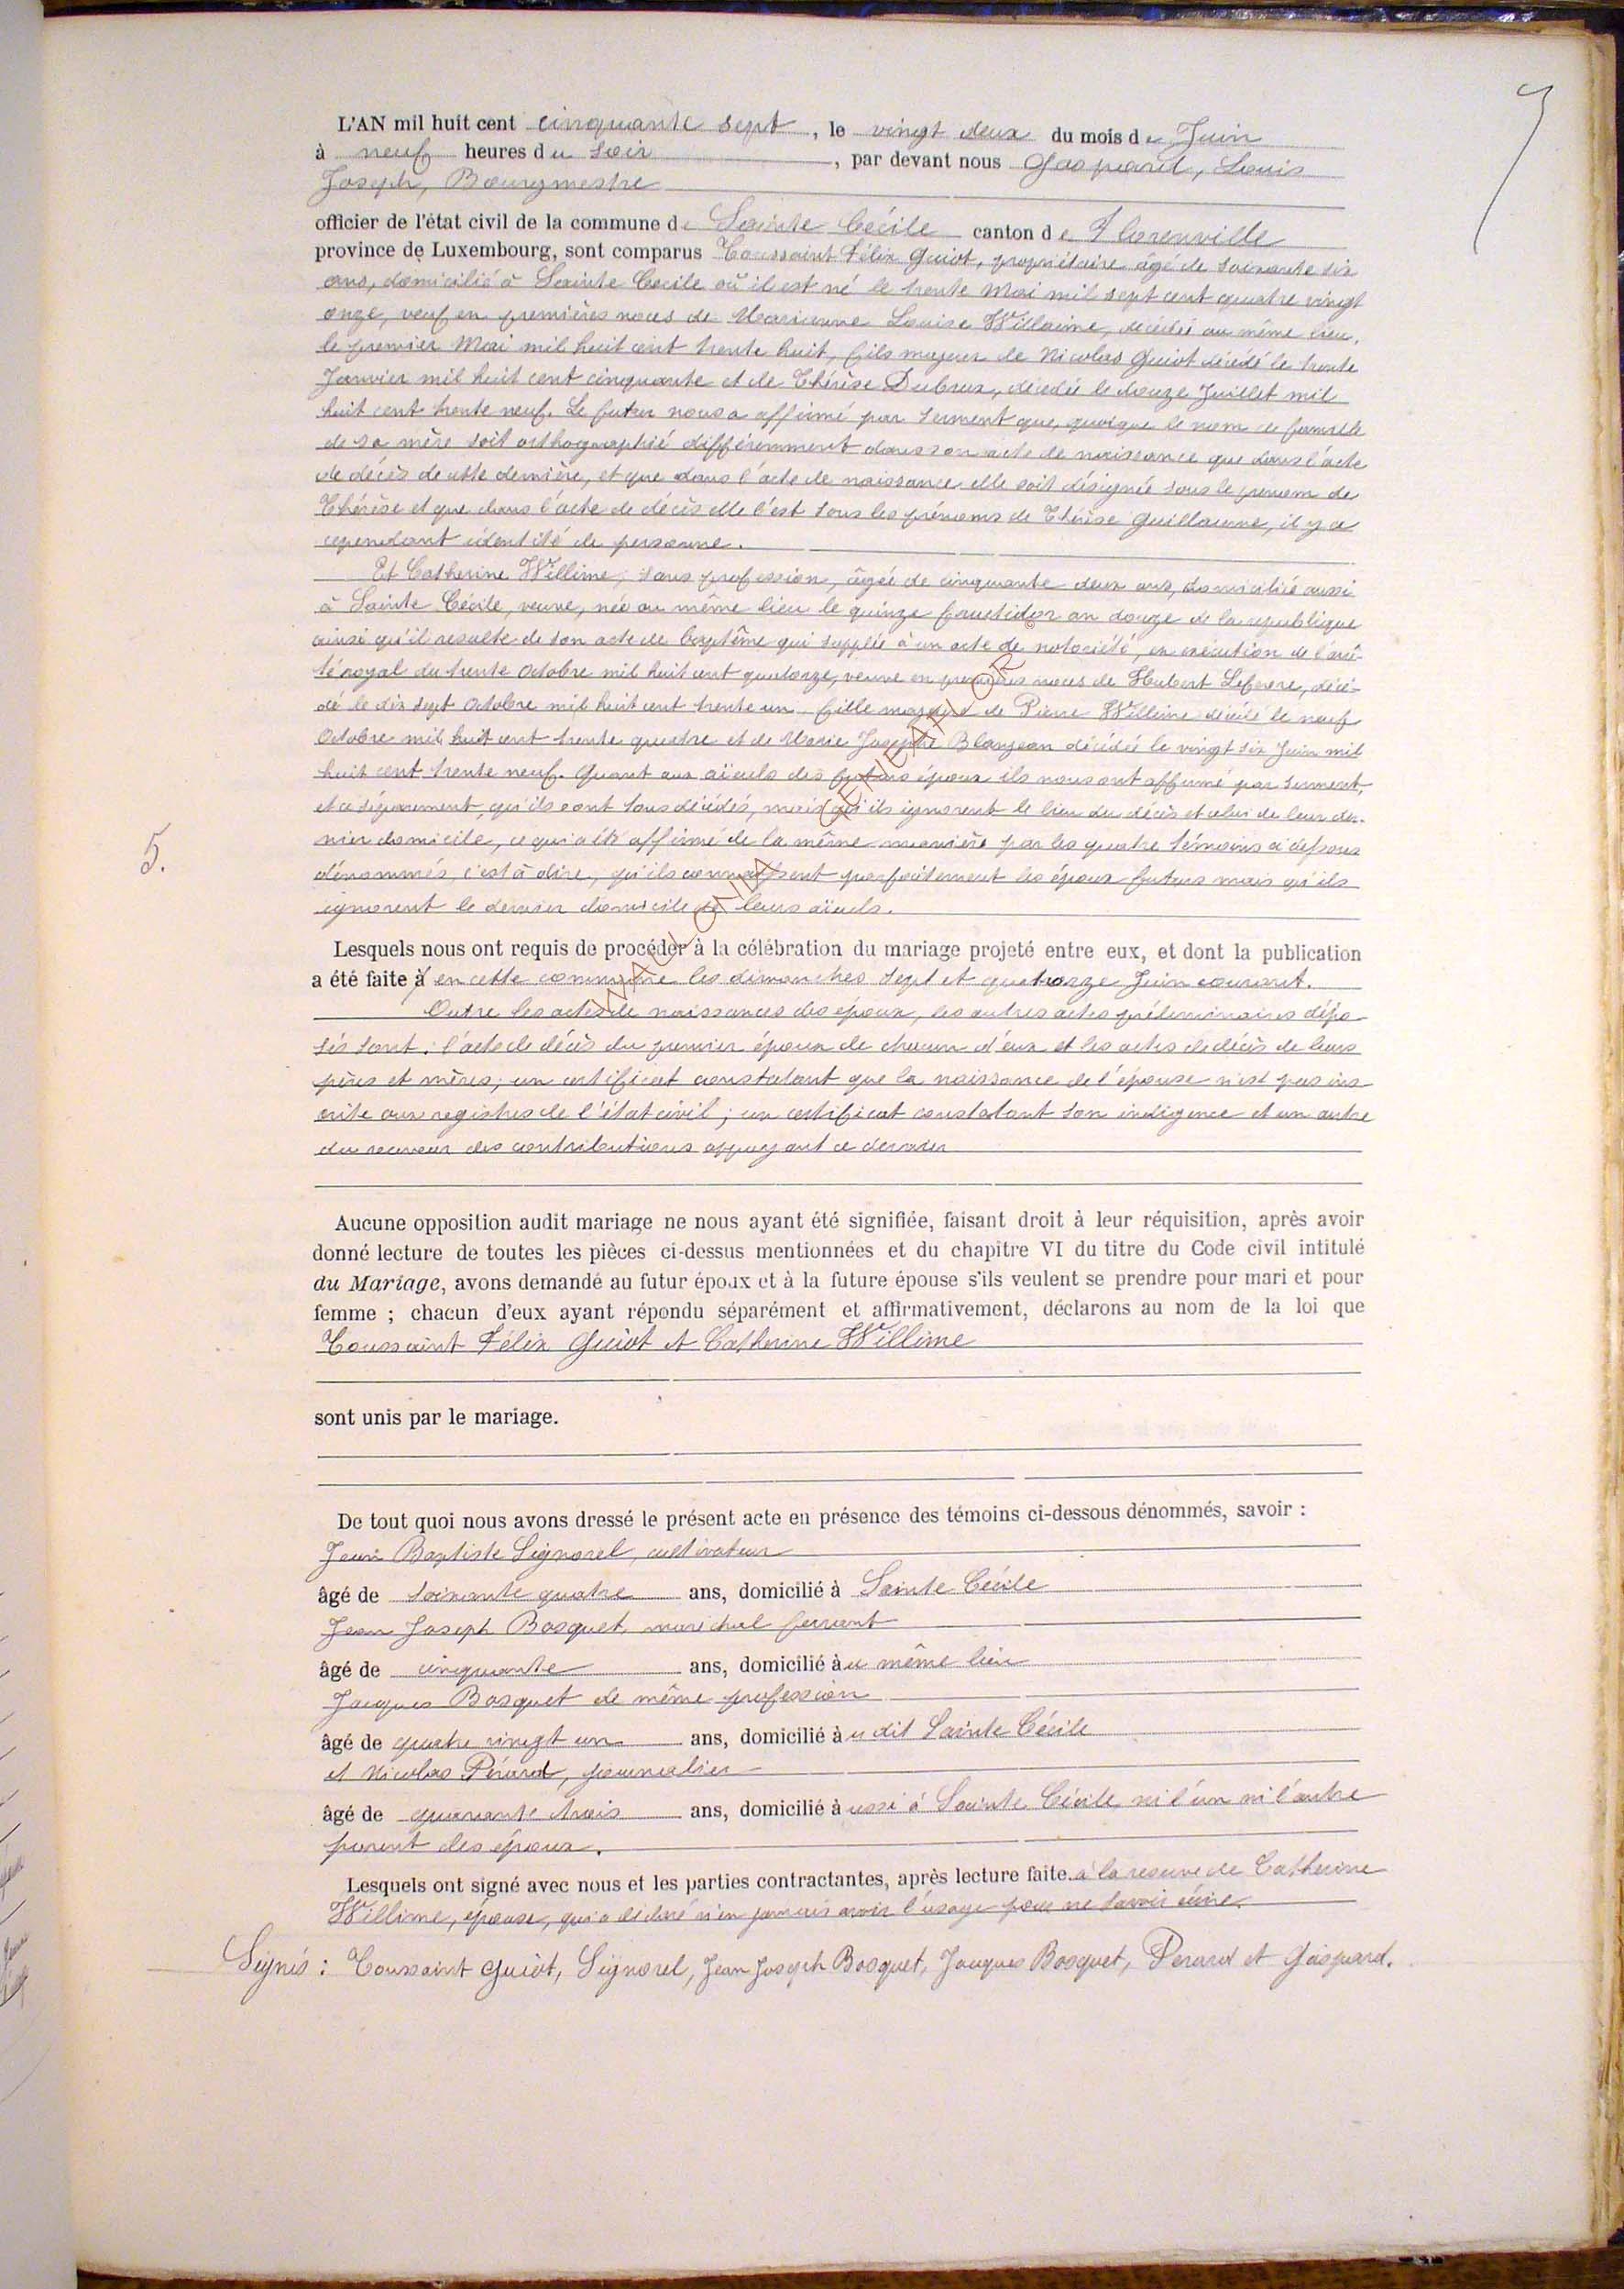 7
L'AN mil huit cent cinquante sept, le vingt deux du mois de Juin
à neuf heures du soir, par devant nous Gaspard, Louis
Joseph, Bourgmestre
officier de l'état civil de la commune de Sainte Cécile canton de Florenville
province de Luxembourg, sont comparus Toussaint Félix Guiot, propriétaire âgé de soixante six
ans, domicilié à Sainte Cecile où il est né le trente Mai mil sept cent quatre vingt
onze, veuf en premières noces de Marianne Louise Willaime, décédée au même lieu,
le premier Mai mil huit cent trente huit, fils majeur de Nicolas Guiot décédé le trente
Janvier mil huit cent cinquante et de Thérèse Dubrux, décédée le douze Juillet mil
huit cent trente neuf. Le futur nous a affirmé par serment que, quoique le nom de famille
de sa mère soit orthographié différemment dans son acte de naissance que dans l'acte
de décès de cette dernière, et que dans l'acte de naissance elle soit désignée sous le prenom de
Thérèse et que dans l'acte de décès elle l'est sous les prénoms de Thérèse Guillaume, il y a
cependant identité de personne.
Et Catherine Willime, sans profession, âgée de cinquante deux ans, domiciliée aussi
à Sainte Cécile, veuve, née au même lieu le quinze fructidor an douze de la republique
ainsi qu'il resulte de son acte de baptême qui supplée à un acte de notoriété, en exécution de l'arrê-
té royal du trente Octobre mil huit cent quatorze, veuve en premières noces de Hubert Lefevre, décé-
dé le dix sept Octobre mil huit cent trente un fille majeure de Pierre Willime décédé le neuf
Octobre mil huit cent trente quatre et de Marie Josephe Blanjean décédée le vingt six Juin mil
huit cent trente neuf. Quant aux aïeuls des futurs époux ils nous ont affirmé par serment,
et ce séparement, qu'ils sont tous décédés, mais qu'ils ignorent le lieu du décès et celui de leur der-
nier domicile, ce qui a été affirmé de la même manière par les quatre témoins ci dessous
dénommés, c'est à dire, qu'ils connaissent parfaitement les époux futurs mais qu'ils
ignorent le dernier domicile de leurs aïeuls.
5.
Lesquels nous ont requis de procéder à la célébration du mariage projeté entre eux, et dont la publication
a été faite à en cette commune les dimanches sept et quatorze Juin courant.
Outre les actes de naissances des époux, les autres actes préliminaires dépo-
sés sont: l'acte de décès du premier époux de chacun d'eux et les actes de décès de leurs
pères et mères; un certificat constatant que la naissance de l'épouse n'est pas ins-
crite aux registres de l'état civil; un certificat constatant son indigence et un autre
du receveur des contributions appuyant ce dernier
Aucune opposition audit mariage ne nous ayant été signifiée, faisant droit à leur réquisition, après avoir
donné lecture de toutes les pièces ci-dessus mentionnées et du chapitre VI du titre du Code civil intitulé
du Mariage, avons demandé au futur époux et à la future épouse s'ils veulent se prendre pour mari et pour
femme ; chacun d'eux ayant répondu séparément et affirmativement, déclarons au nom de la loi que
Toussaint Félix Guiot et Catherine Willime
sont unis par le mariage.
De tout quoi nous avons dressé le présent acte en présence des témoins ci-dessous dénommés, savoir :
Jean Baptiste Signorel, cultivateur
âgé de soixante quatre ans, domicilié à Sainte Cécile
Jean Joseph Bosquet, maréchal ferrant
âgé de cinquante ans, domicilié àu même lieu
Jacques Bosquet de même profession
âgé de quatre vingt un ans, domicilié àu dit Sainte Cécile
et Nicolas Pérard, journalier
âgé de quarante trois ans, domicilié àussi à Sainte Cécile, ni l'un ni l'autre
parent des époux.
Lesquels ont signé avec nous et les parties contractantes, après lecture faite. à la reserve de Catherine
Willime, épouse, qui a déclaré n'en jamais avoir l'usage pour ne savoir écrire.
Signés : Toussaint Guiot, Signorel, Jean Joseph Bosquet, Jacques Bosquet, Perard et Gaspard.